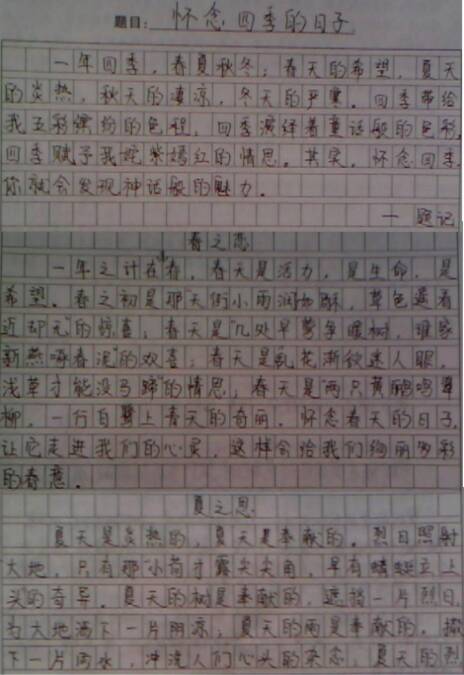 题目: 怀念四季的日子
一年四季,春夏秋冬;春天的希望,夏天
的炎热,秋天的凄凉,冬天的严寒。四季带给
我五彩缤纷的色程,四季演绎着童话般的色彩,
四季赋予我姹紫嫣红的情思。其实,怀念四季,
你就会发现神话般的魅力。
——题记
春之恋
一年之计在春,春天是活力,是生命,是
希望。春之初是那"天街小雨润如酥,草色遥看
近却无"的惊喜;春天是"几处早莺争暖树,谁家
新燕啄春泥"的欢喜;春天是"乱花渐欲迷人眼,
浅草才能没马蹄"的情思;春天是"两只黄鹂鸣翠
柳,一行白鹭上青天的奇丽。怀念春天的日子,
让它走进我们的心灵,这样会给我们绚丽多彩
的春意。
夏之思
夏天是炎热的,夏天是奉献的。烈日照射
大地,只有那"小荷才露尖尖角,早有蜻蜓立上
头"的奇异。夏天的树是奉献的,遮挡一片烈日,
为大地洒下一片阴凉;夏天的雨是奉献的,撒
下一片雨水,冲洗人们心头的杂念,夏天的烈